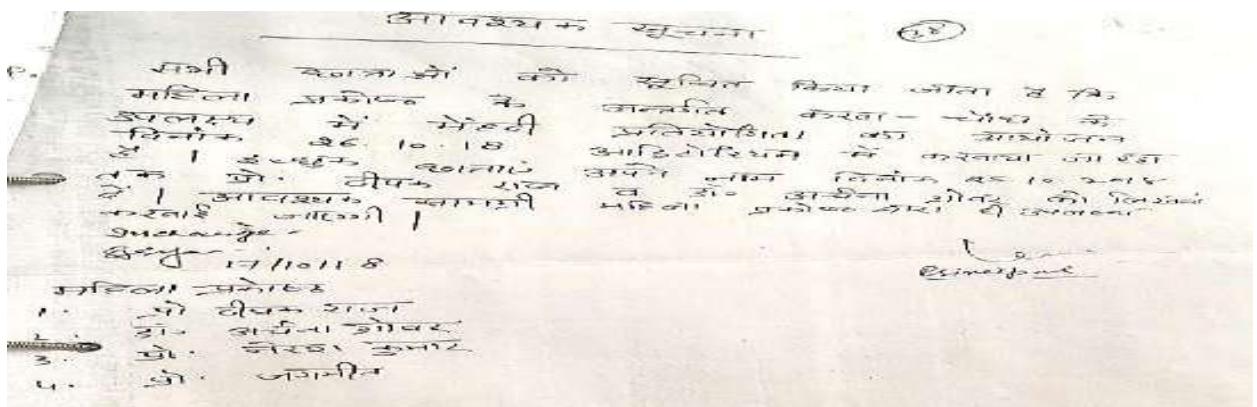 आवश्यक सूचना
सभी छात्राओं को सूचित किया जाता है कि
महिला प्रकोष्ठ के अन्तर्गत करवा-चौथ के
उपलक्ष्य में मेंहदी प्रतियोगिता का आयोजन
दिनांक 26.10.18 आडिटोरियम में करवाया जा रहा
है। इच्छुक छात्राएं अपने नाम दिनांक 25.10.2018
तक प्रो. दीपक राज व डॉ. अर्चना ग्रोवर को लिखवा
दें। आवश्यक सामग्री महिला प्रकोष्ठ द्वारा ही उपलब्ध
करवाई जाएगी।
Incharge -
17/10/18
Principal
महिला प्रकोष्ठ
1. प्रो दीपक राज
2. डॉ. अर्चना ग्रोवर
3. प्रो. नरेश कुमार
4. प्रो. जगमीत